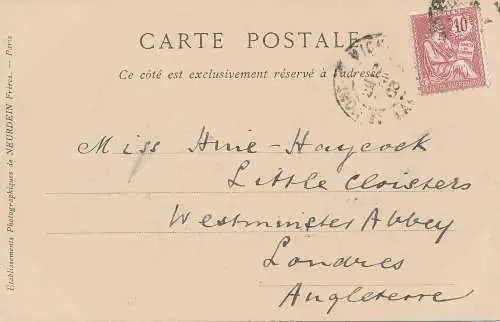 CARTE POSTALE
Ce côté est exclusivement réservé à l'adresse
10
Miss Hine-Haycock
Little Cloisters
Westminster Abbey
Londres
Angleterre
Etablissements Photographiques de NEURDEIN Frères. — Paris